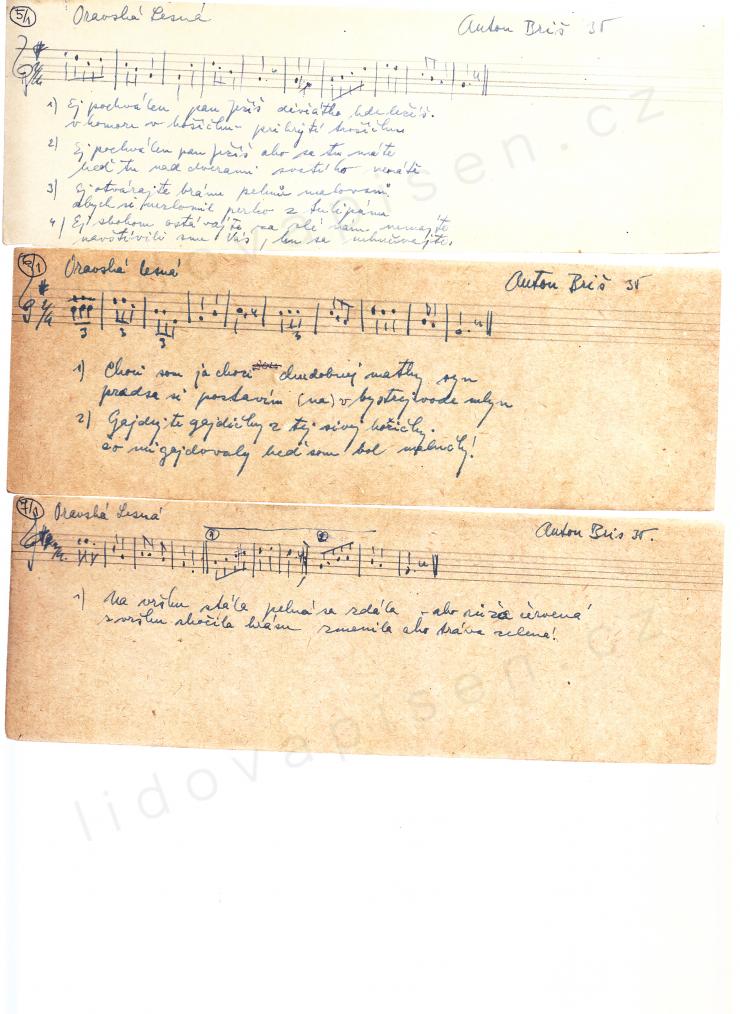 5/1 Oravská Lesná Anton Briš 35
2/4
1) Ej pochválen pan Ježiš děvčátko kde ležíš.
v komore v košičku prikryté trošičku
2) Ej pochválen pan Ježiš ako sa tu máte
keď tu nad dverami svatého nemáte
3) Ej otvárajte bránu pelnú malovanú
abych si uzlomil perko z tulipánu
4) Ej sbohom ostávajte za zlé nám nemajte
navštivili sme Vás, len sa nehněvajte.
6/1 Oravská Lesná Anton Briš 35
2/4
3 3 3 3
1) Chori som ja chori chudobnej matky syn
pradsa si postavím (na) v bystrej vode mlyn
2) Gajdujte gajdičky z tej sivej kožičky.
čo mi gajdovaly keď som bol maličký!
7/1 Oravská Lesná Anton Bris 35.
1 2
1) Na vršku stála pekná sa zdála - ako růža červená
z vršku skočila krásu zmenila ako tráva zelená!
lidovapisen.cz
lidovapisen.cz